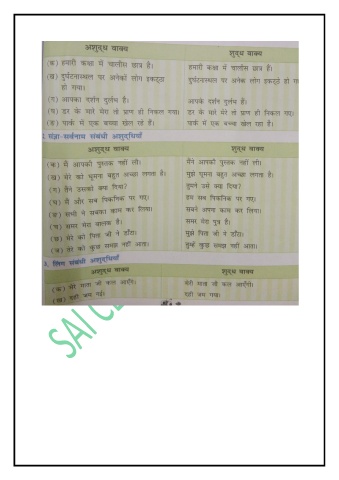 अशुद्ध वाक्य शुद्ध वाक्य
(क) हमारी कक्षा में चालीस छात्र है। हमारी कक्षा में चालीस छात्र हैं।
(ख) दुर्घटनास्थल पर अनेकों लोग इकट्ठा दुर्घटनास्थल पर अनेक लोग इकट्ठे हो
हो गया।
(ग) आपका दर्शन दुर्लभ है। आपके दर्शन दुर्लभ हैं।
(घ) डर के मारे मेरा तो प्राण ही निकल गया। डर के मारे मेरे तो प्राण ही निकल गए।
(ङ) पार्क में एक बच्चा खेल रहे हैं। पार्क में एक बच्चा खेल रहा है।
संज्ञा-सर्वनाम संबंधी अशुद्धियाँ
अशुद्ध वाक्य शुद्ध वाक्य
(क) मैं आपकी पुस्तक नहीं ली। मैंने आपकी पुस्तक नहीं ली।
(ख) मेरे को घूमना बहुत अच्छा लगता है। मुझे घूमना बहुत अच्छा लगता है।
(ग) तैने उसको क्या दिया? तुमने उसे क्या दिया?
(घ) मैं और सब पिकनिक पर गए। हम सब पिकनिक पर गए।
(ङ) सभी ने सबका काम कर लिया। सबने अपना काम कर लिया।
(च) समर मेरा बालक है। समर मेरा पुत्र है।
(छ) मेरे को पिता जी ने डाँटा। मुझे पिता जी ने डाँटा।
(ज) तेरे को कुछ समझ नहीं आता। तुम्हें कुछ समझ नहीं आता।
लिंग संबंधी अशुद्धियाँ
अशुद्ध वाक्य शुद्ध वाक्य
(क) मेरे माता जी कल आएँगे। मेरी माता जी कल आएँगी।
(ख) दही जम गई। दही जम गया।
SAI